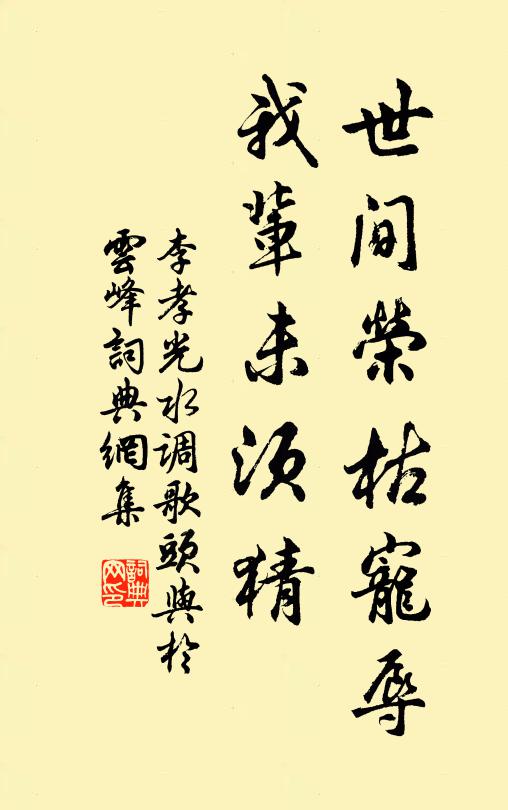 世间榮枯寵辱
我輩未须猜
李孝光水调歌頭與於
雲峰詞典網集
詞典
网印